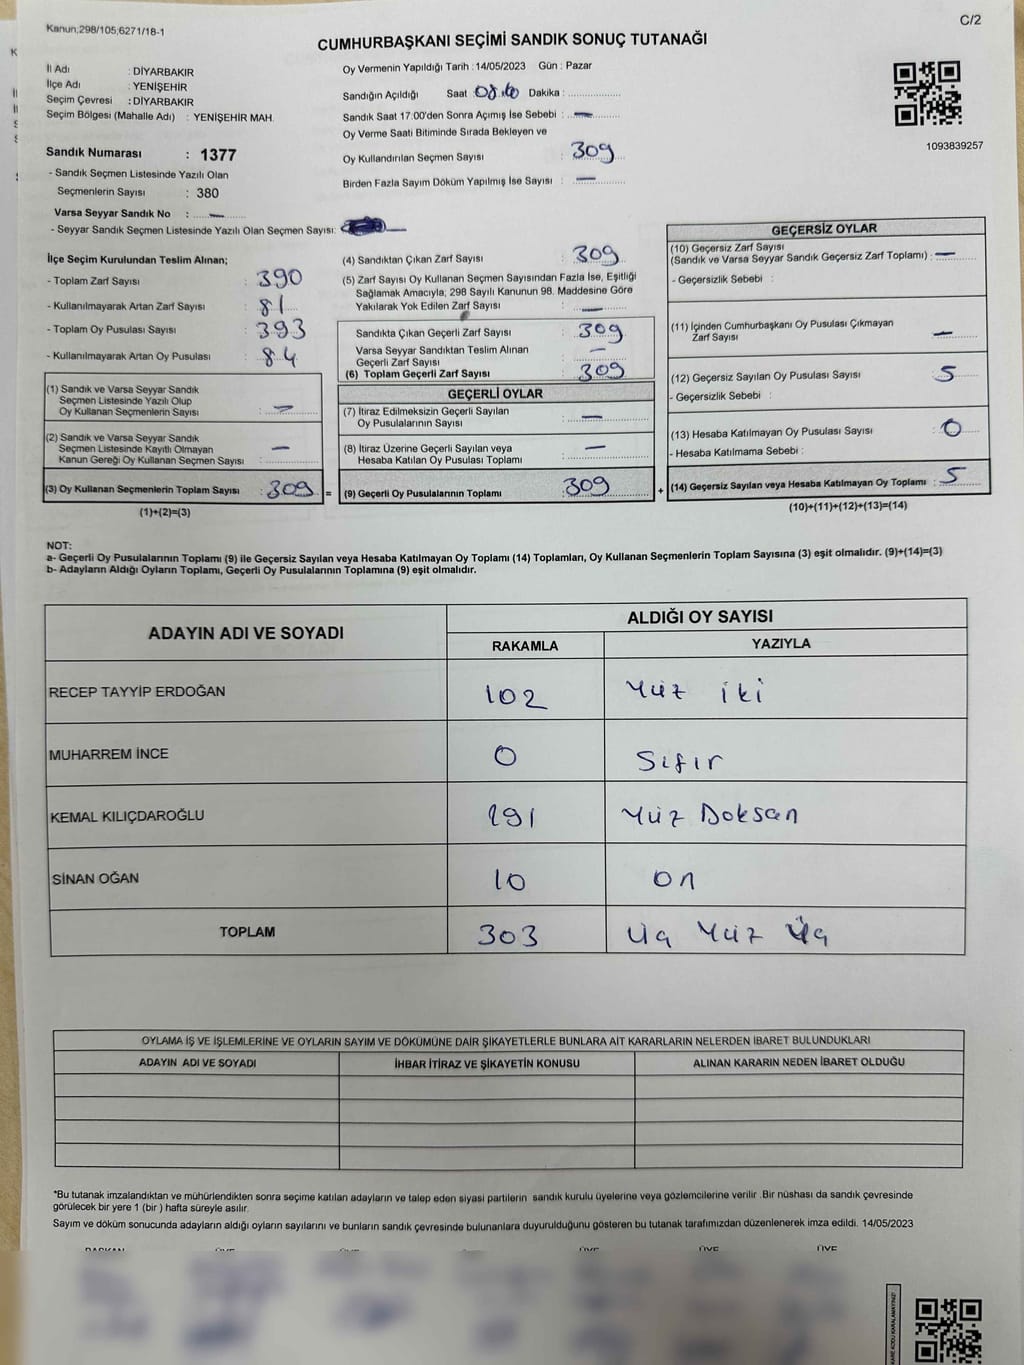 Kanun;298/105;6271/18-1
C/2
CUMHURBAŞKANI SEÇİMİ SANDIK SONUÇ TUTANAĞI
İl Adı : DİYARBAKIR
İlçe Adı : YENİŞEHİR
Seçim Çevresi : DİYARBAKIR
Seçim Bölgesi (Mahalle Adı) : YENİŞEHİR MAH.
Oy Vermenin Yapıldığı Tarih :14/05/2023 Gün : Pazar
Sandığın Açıldığı Saat : Dakika :
Sandık Saat 17.00'den Sonra Açımış İse Sebebi : —
Oy Verme Saati Bitiminde Sırada Bekleyen ve
Oy Kullandırılan Seçmen Sayısı : 309
Birden Fazla Sayım Döküm Yapılmış İse Sayısı : —
1093839257
Sandık Numarası : 1377
- Sandık Seçmen Listesinde Yazılı Olan
Seçmenlerin Sayısı : 380
Varsa Seyyar Sandık No : —
- Seyyar Sandık Seçmen Listesinde Yazılı Olan Seçmen Sayısı: —
İlçe Seçim Kurulundan Teslim Alınan;
- Toplam Zarf Sayısı : 390
- Kullanılmayarak Artan Zarf Sayısı : 81
- Toplam Oy Pusulası Sayısı : 393
- Kullanılmayarak Artan Oy Pusulası : 84
(1) Sandık ve Varsa Seyyar Sandık
Seçmen Listesinde Yazılı Olup
Oy Kullanan Seçmenlerin Sayısı : —
(2) Sandık ve Varsa Seyyar Sandık
Seçmen Listesinde Kayıtlı Olmayan
Kanun Gereği Oy Kullanan Seçmen Sayısı : —
(3) Oy Kullanan Seçmenlerin Toplam Sayısı : 309 =
(1)+(2)=(3)
(4) Sandıktan Çıkan Zarf Sayısı : 309
(5) Zarf Sayısı Oy Kullanan Seçmen Sayısından Fazla İse, Eşitliği
Sağlamak Amacıyla; 298 Sayılı Kanunun 98. Maddesine Göre
Yakılarak Yok Edilen Zarf Sayısı : —
Sandıkta Çıkan Geçerli Zarf Sayısı : 309
Varsa Seyyar Sandıktan Teslim Alınan
Geçerli Zarf Sayısı : —
(6) Toplam Geçerli Zarf Sayısı : 309
GEÇERLİ OYLAR
(7) İtiraz Edilmeksizin Geçerli Sayılan
Oy Pusulalarının Sayısı : —
(8) İtiraz Üzerine Geçerli Sayılan veya
Hesaba Katılan Oy Pusulası Toplamı : —
(9) Geçerli Oy Pusulalarının Toplamı : 309 +
GEÇERSİZ OYLAR
(10) Geçersiz Zarf Sayısı
(Sandık ve Varsa Seyyar Sandık Geçersiz Zarf Toplamı) : —
- Geçersizlik Sebebi :
(11) İçinden Cumhurbaşkanı Oy Pusulası Çıkmayan
Zarf Sayısı —
(12) Geçersiz Sayılan Oy Pusulası Sayısı : 5
- Geçersizlik Sebebi :
(13) Hesaba Katılmayan Oy Pusulası Sayısı : 0
- Hesaba Katılmama Sebebi :
(14) Geçersiz Sayılan veya Hesaba Katılmayan Oy Toplamı : 5
(10)+(11)+(12)+(13)=(14)
NOT:
a- Geçerli Oy Pusulalarının Toplamı (9) ile Geçersiz Sayılan veya Hesaba Katılmayan Oy Toplamı (14) Toplamları, Oy Kullanan Seçmenlerin Toplam Sayısına (3) eşit olmalıdır. (9)+(14)=(3)
b- Adayların Aldığı Oyların Toplamı, Geçerli Oy Pusulalarının Toplamına (9) eşit olmalıdır.
ADAYIN ADI VE SOYADI ALDIĞI OY SAYISI
RAKAMLA YAZIYLA
RECEP TAYYİP ERDOĞAN 102 Yüz iki
MUHARREM İNCE 0 Sıfır
KEMAL KILIÇDAROĞLU 191 Yüz Doksan
SİNAN OĞAN 10 on
TOPLAM 303 üç Yüz üç
OYLAMA İŞ VE İŞLEMLERİNE VE OYLARIN SAYIM VE DÖKÜMÜNE DAİR ŞİKAYETLERLE BUNLARA AİT KARARLARIN NELERDEN İBARET BULUNDUKLARI
ADAYIN ADI VE SOYADI İHBAR İTİRAZ VE ŞİKAYETİN KONUSU ALINAN KARARIN NEDEN İBARET OLDUĞU
*Bu tutanak imzalandıktan ve mühürlendikten sonra seçime katılan adayların ve talep eden siyasi partilerin sandık kurulu üyelerine veya gözlemcilerine verilir .Bir nüshası da sandık çevresinde
görülecek bir yere 1 (bir ) hafta süreyle asılır.
Sayım ve döküm sonucunda adayların aldığı oyların sayılarını ve bunların sandık çevresinde bulunanlara duyurulduğunu gösteren bu tutanak tarafımızdan düzenlenerek imza edildi. 14/05/2023
BAŞKAN ÜYE ÜYE ÜYE ÜYE